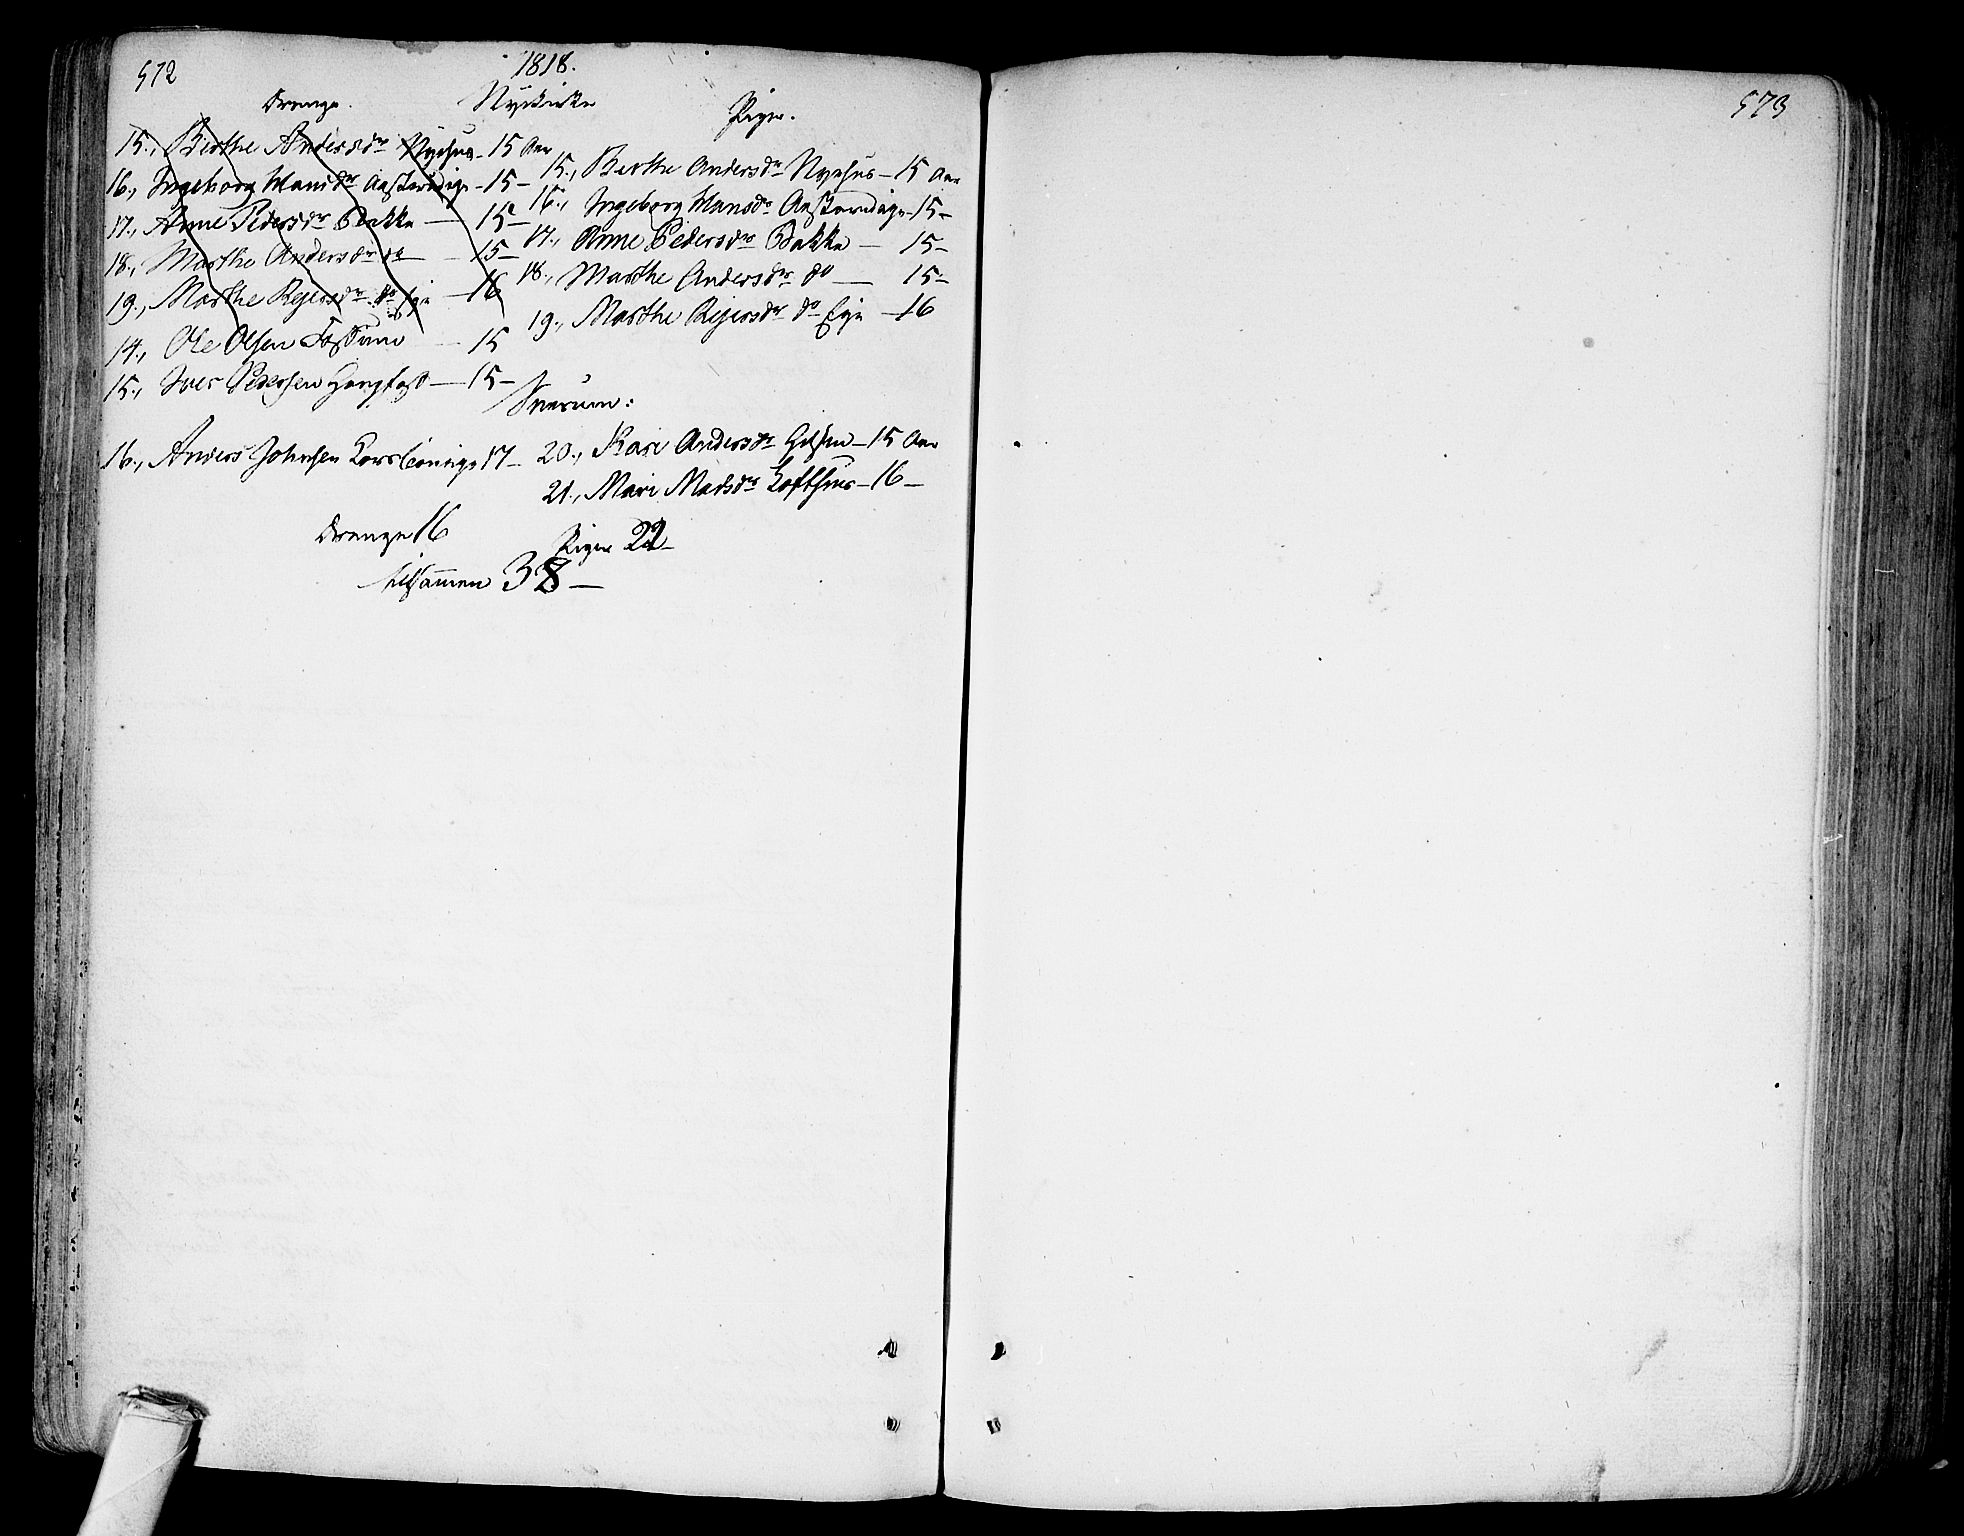 572
1818.
Drenge. Nykirke Piger.
15., Berthe Andersdr Nyehus - 15 Aar
16., Ingeborg Hansdr - 15 -
17., Anne Pedersdr Bakke - 15 -
18., Marthe Andersdr do - 15 -
19., Marthe Rejersdr do Eje - 16
14., Ole Olsen Fossum - 15
15., Iver Pedersen - 15 -
15., Berthe Andersdr Nyehus - 15 Aar
16., Ingeborg Hansdr - 15 -
17., Anne Pedersdr Bakke - 15 -
18., Marthe Andersdr do - 15 -
19., Marthe Rejersdr do Eje - 16
Snarum:
16., Anders Johnsen 17 -
20., Kari Andersdr - 15 Aar
21., Mari Madsdr Lofthuus - 16 -
Drenge 16 Piger 22 -
tilsammen 38 -
573